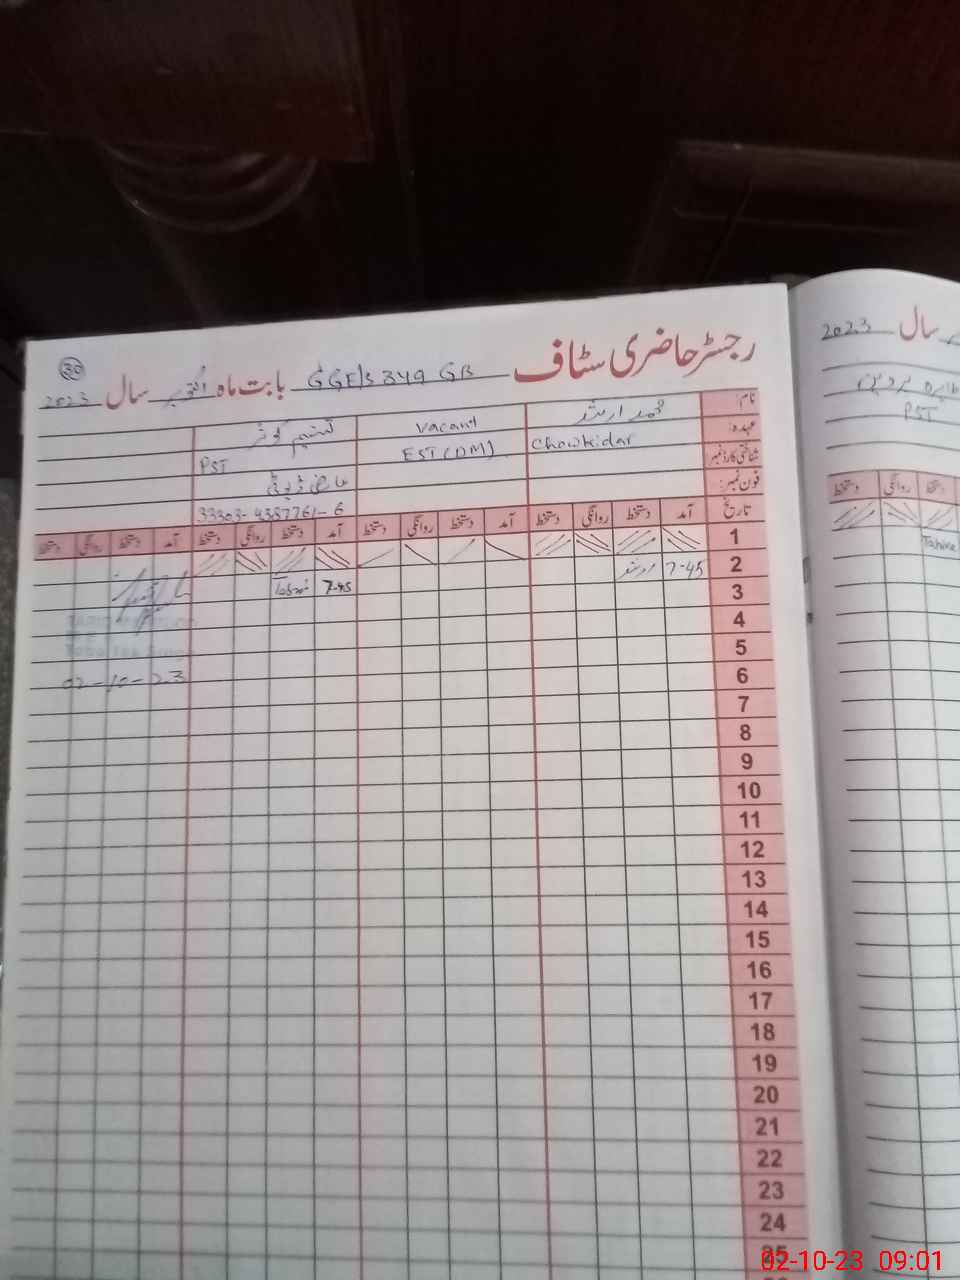 رجسٹر حاضری سٹاف
30
GGE/S 349 GB بابت ماہ اکتوبر سال 2023
نام: محمد ارشد
vacant
تسنیم کوثر
عہدہ: Chowkidar
EST (DM)
PST
شناختی کارڈ نمبر:
عارضی ڈیوٹی
فون نمبر:
33303-4387761-6
تاریخ آمد دستخط روانگی دستخط آمد دستخط روانگی دستخط آمد دستخط روانگی دستخط آمد دستخط روانگی دستخط
1
2 7-45 ارشد 7-45
3
4
5
6
02-10-23
7
8
9
10
11
12
13
14
15
16
17
18
19
20
21
22
23
24
25
سال 2023
طاہرہ پروین
PST
دستخط روانگی دستخط
Tahira
02-10-23 09:01